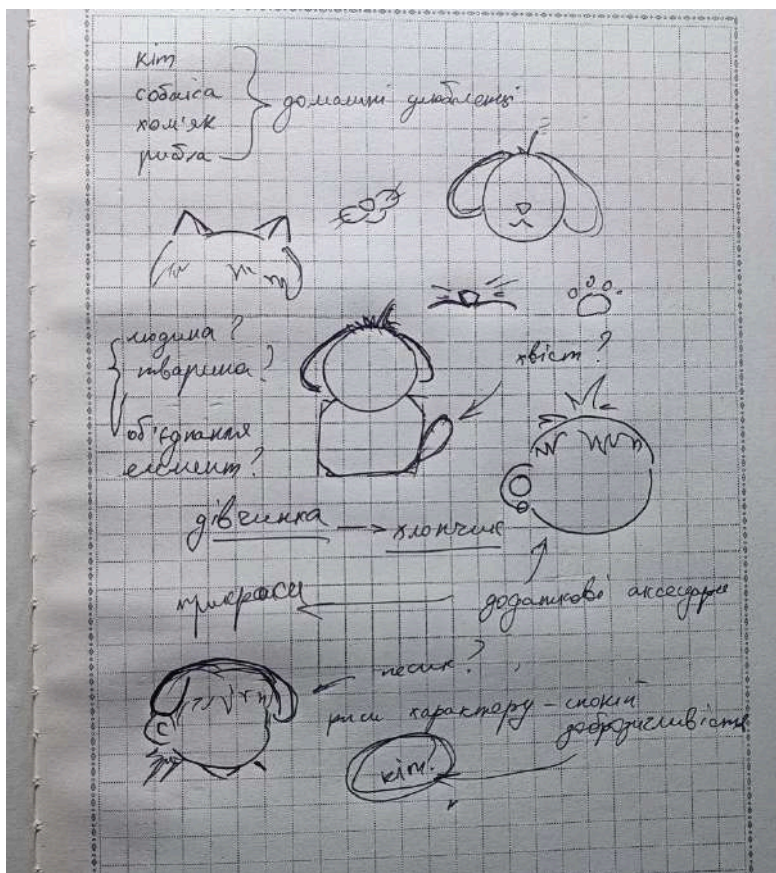 кіт
собака
хом'як
рибка
домашні улюбленці
людина?
тварина?
об'єднання
елемент?
хвіст?
дівчинка → хлопчик
прикраси
додаткові аксесуари
песик?
риси характеру – спокій
доброзичливість
кіт?